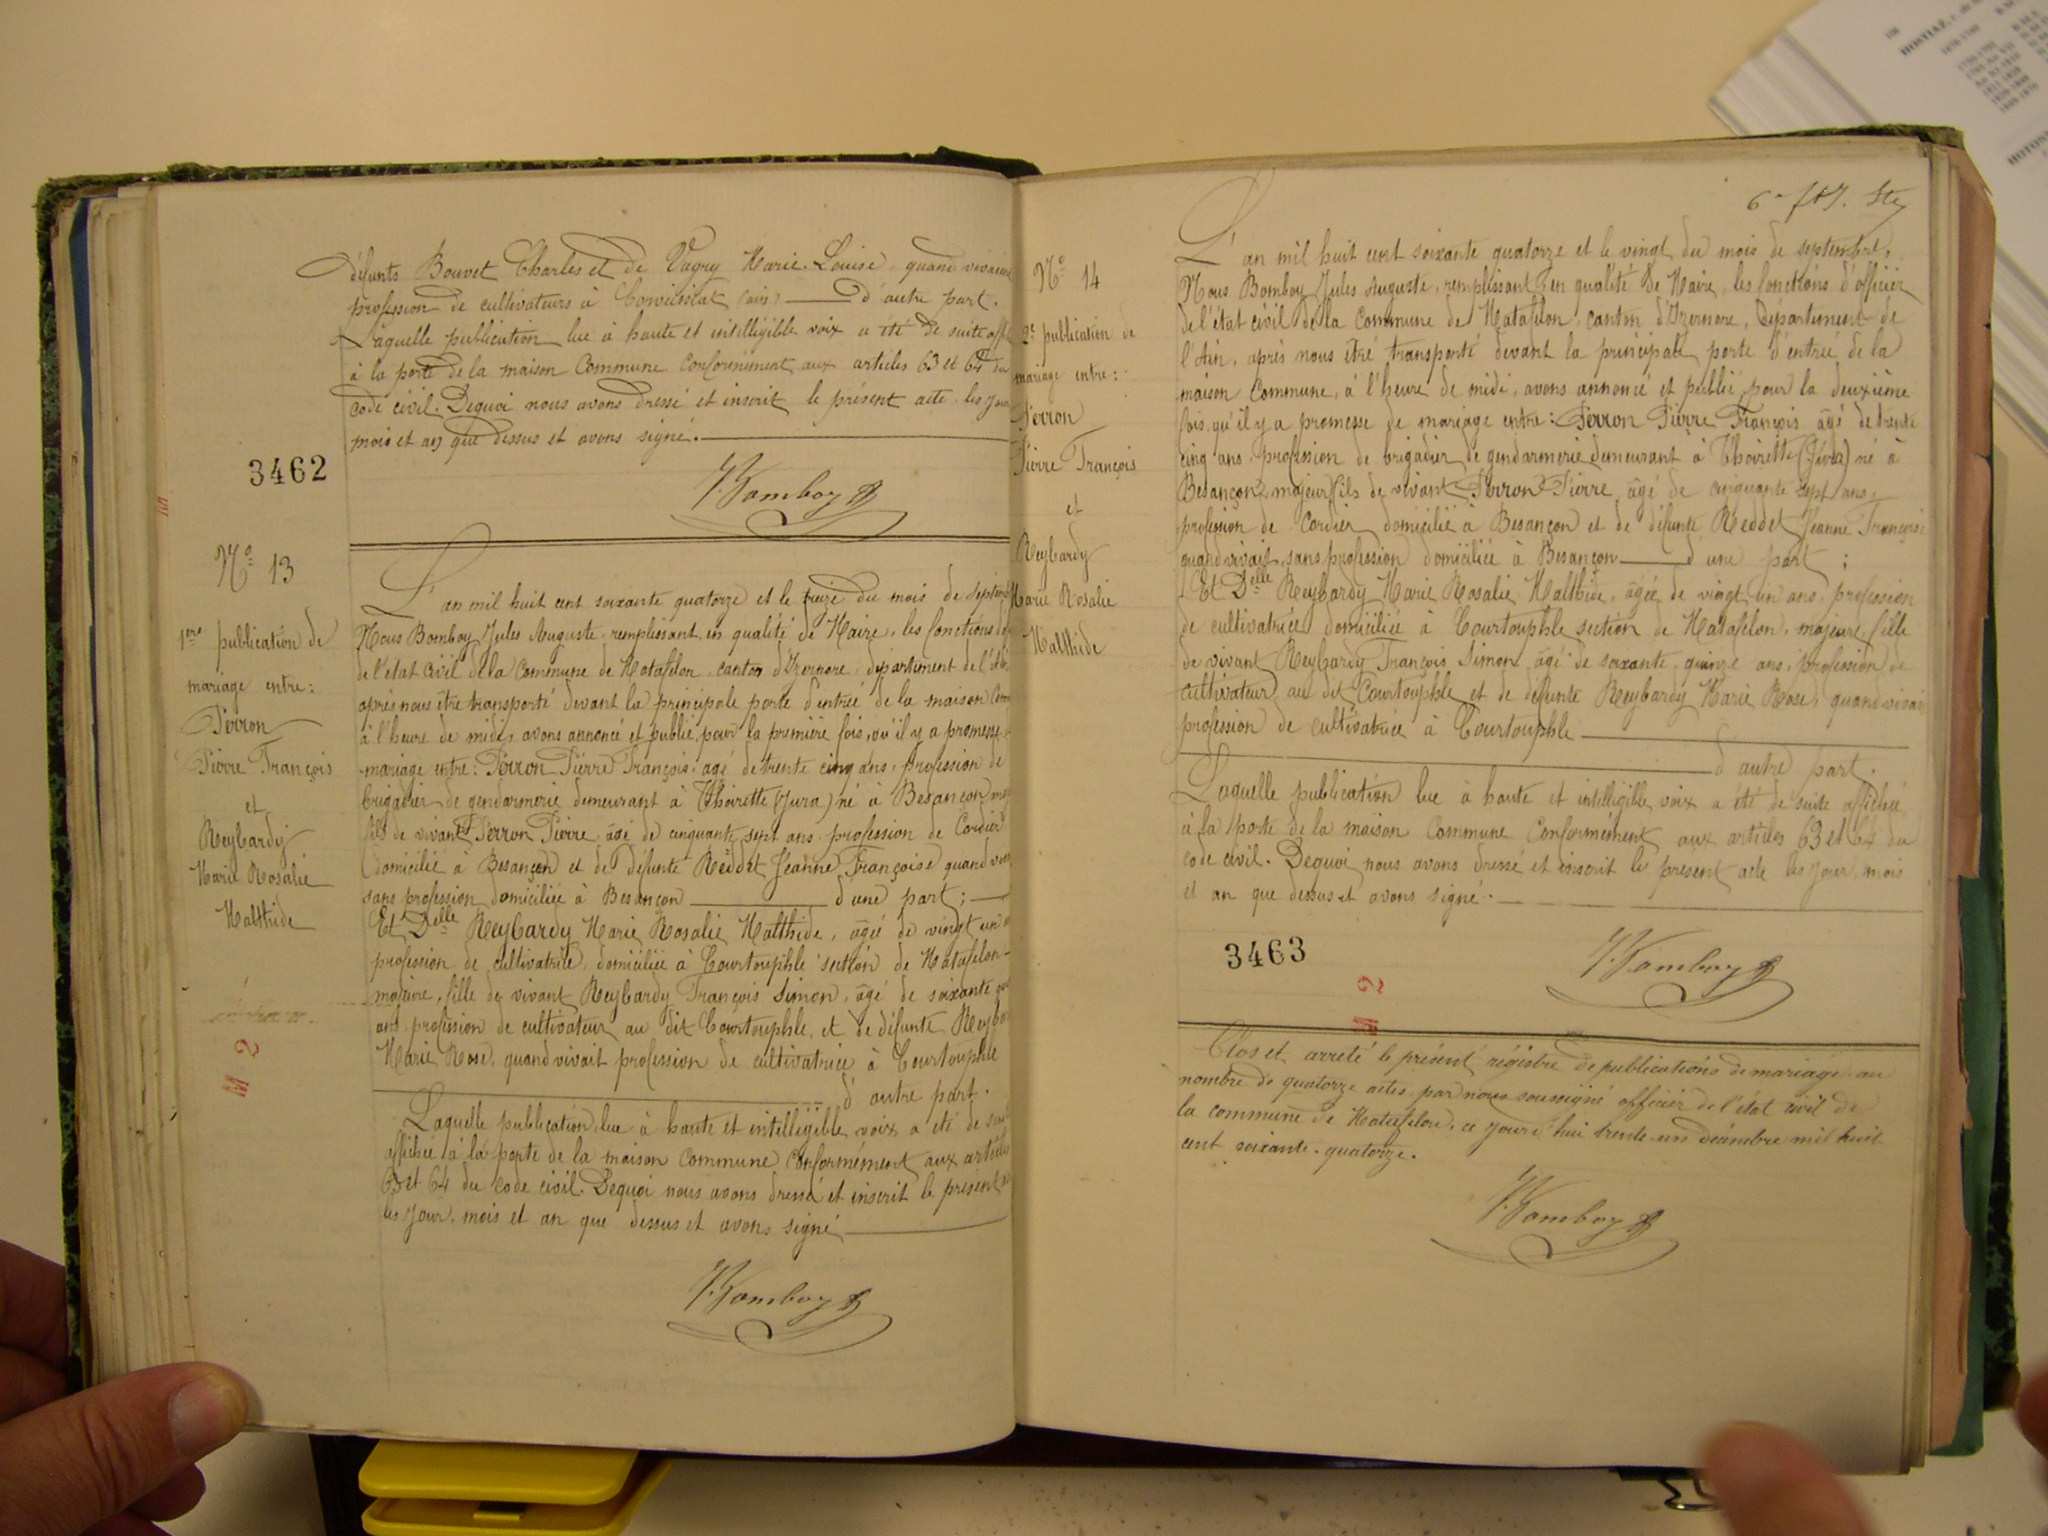 défunts Bouvet Charles et de Vagry Marie Louise, quand vivaient
profession de cultivateurs à Corveissiat (ain) d'autre part.
Laquelle publication lue à haute et intelligible voix a été de suite affi
à la porte de la maison Commune Conformément aux articles 63 et 64 du
code civil. Dequoi nous avons dressé et inscrit le présent acte les jour
mois et an que dessus et avons signé.
3462
J. Bomboy
N° 13
1ere publication de
mariage entre:
Perron
Pierre François
et
Reybardy
Marie Rosalie
Malthide
M 2
L'an mil huit cent soixante quatorze et le treize du mois de Septem
Nous Bomboy Jules Auguste, remplissant en qualité de Maire, les fonctions
de l'état civil de la Commune de Matafelon, canton d'Izernore, département de l'
après nous être transporté devant la principale porte d'entrée de la maison Com
à l'heure de midi, avons annoncé et publié pour la première fois, qu'il y a promesse
mariage entre: Perron Pierre François, agé de trente cinq ans, profession de
brigadier de gendarmerie demeurant à Thoirette (Jura) né à Besançon
fils de vivant Perron Pierre âgé de cinquante sept ans profession de Cordier
domicilié à Besançon et de défunte Reddet Jeanne Françoise quand
sans profession domiciliée à Besançon d'une part;
Et Delle Reybardy Marie Rosalie Malthide, âgée de vingt un
profession de cultivatrice, domiciliée à Courtouphle section de Matafelon
majeure, fille de vivant Reybardy François Simon, âgé de soixante
ans profession de cultivateur au dit Courtouphle, et de défunte Reyb
Marie Rose, quand vivait profession de cultivatrice à Courtouphle
d'autre part.
Laquelle publication lue à haute et intelligible voix a été de
affichée à la porte de la maison Commune Conformément aux articles
63 et 64 du code civil. Dequoi nous avons dressé et inscrit le présent
les jour, mois et an que dessus et avons signé
J. Bomboy
N° 14
2e publication de
mariage entre:
Perron
Pierre François
et
Reybardy
Marie Rosalie
Malthide
L'an mil huit cent soixante quatorze et le vingt du mois de septembre,
Nous Bomboy Jules Auguste, remplissant en qualité de Maire, les fonctions d'officier
de l'état civil de la Commune de Matafelon, canton d'Izernore, Département de
l'Ain, après nous être transporté devant la principale porte d'entrée de la
maison Commune, à l'heure de midi, avons annoncé et publié pour la deuxième
fois, qu'il y a promesse de mariage entre: Perron Pierre François âgé de trente
cinq ans, profession de brigadier de gendarmerie demeurant à Thoirette (Jura) né à
Besançon, majeur fils de vivant Perron Pierre, âgé de cinquante sept ans,
profession de Cordier domicilié à Besançon et de défunte Reddet Jeanne François
quand vivait, sans profession domiciliée à Besançon d'une part;
Et Delle Reybardy Marie Rosalie Malthide, âgée de vingt un ans, profession
de cultivatrice domiciliée à Courtouphle section de Matafelon, majeure fille
de vivant Reybardy François Simon, âgé de soixante quinze ans, profession de
cultivateur au dit Courtouphle et de défunte Reybardy Marie Rose, quand vivai
profession de cultivatrice à Courtouphle
d'autre part.
Laquelle publication lue à haute et intelligible voix a été de suite affichée
à la porte de la maison Commune Conformément aux articles 63 et 64 du
code civil. Dequoi nous avons dressé et inscrit le présent acte les jour, mois
et an que dessus et avons signé.
3463
M 2
J. Bomboy
Clos et arreté le présent régistre de publications de mariage au
nombre de quatorze actes par nous soussigné officier de l'état civil de
la commune de Matafelon, ce jourd'hui trente un décembre mil huit
cent soixante-quatorze.
J. Bomboy